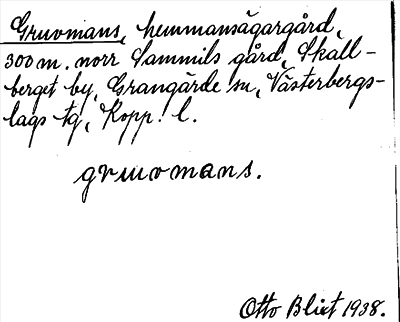 Gruvmans, hemmansägargård,
300 m. norr Sammils gård, Skall-
berget by, Grangärde sn, Västerbergs-
lags tg, Kopp. l.
gruvmans.
Otto Blixt 1938.